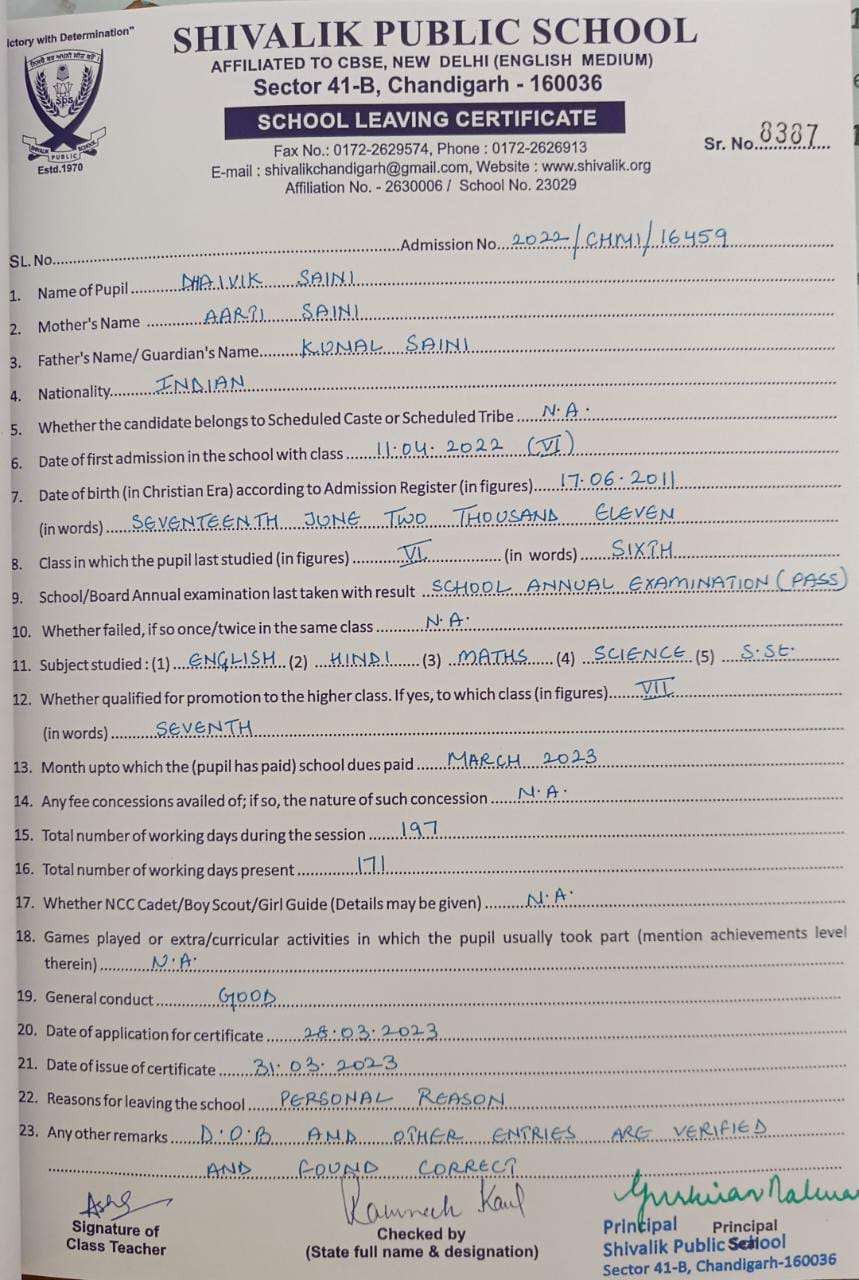 ictory with Determination"
SHIVALIK PUBLIC SCHOOL
AFFILIATED TO CBSE, NEW DELHI (ENGLISH MEDIUM)
Sector 41-B, Chandigarh - 160036
SCHOOL LEAVING CERTIFICATE
SPS
SHIVALIK PUBLIC SCHOOL
Estd.1970
Fax No.: 0172-2629574, Phone : 0172-2626913
Sr. No. 8387
E-mail : shivalikchandigarh@gmail.com, Website : www.shivalik.org
Affiliation No. - 2630006 / School No. 23029
SL. No. Admission No. 2022/CHM1/16459
1. Name of Pupil DHAIVIK SAINI
2. Mother's Name AARTI SAINI
3. Father's Name/ Guardian's Name KUNAL SAINI
4. Nationality INDIAN
5. Whether the candidate belongs to Scheduled Caste or Scheduled Tribe N.A.
6. Date of first admission in the school with class 11.04.2022 (VI)
7. Date of birth (in Christian Era) according to Admission Register (in figures) 17.06.2011
(in words) SEVENTEENTH JUNE TWO THOUSAND ELEVEN
8. Class in which the pupil last studied (in figures) VI (in words) SIXTH
9. School/Board Annual examination last taken with result SCHOOL ANNUAL EXAMINATION (PASS)
10. Whether failed, if so once/twice in the same class N.A.
11. Subject studied : (1) ENGLISH (2) HINDI (3) MATHS (4) SCIENCE (5) S.St.
12. Whether qualified for promotion to the higher class. If yes, to which class (in figures) VII
(in words) SEVENTH
13. Month upto which the (pupil has paid) school dues paid MARCH 2023
14. Any fee concessions availed of; if so, the nature of such concession N.A.
15. Total number of working days during the session 197
16. Total number of working days present 171
17. Whether NCC Cadet/Boy Scout/Girl Guide (Details may be given) N.A.
18. Games played or extra/curricular activities in which the pupil usually took part (mention achievements level
therein) N.A.
19. General conduct GOOD
20. Date of application for certificate 28.03.2023
21. Date of issue of certificate 31.03.2023
22. Reasons for leaving the school PERSONAL REASON
23. Any other remarks D.O.B AND OTHER ENTRIES ARE VERIFIED
AND FOUND CORRECT
Signature of
Class Teacher
Checked by
(State full name & designation)
Principal Principal
Shivalik Public School
Sector 41-B, Chandigarh-160036